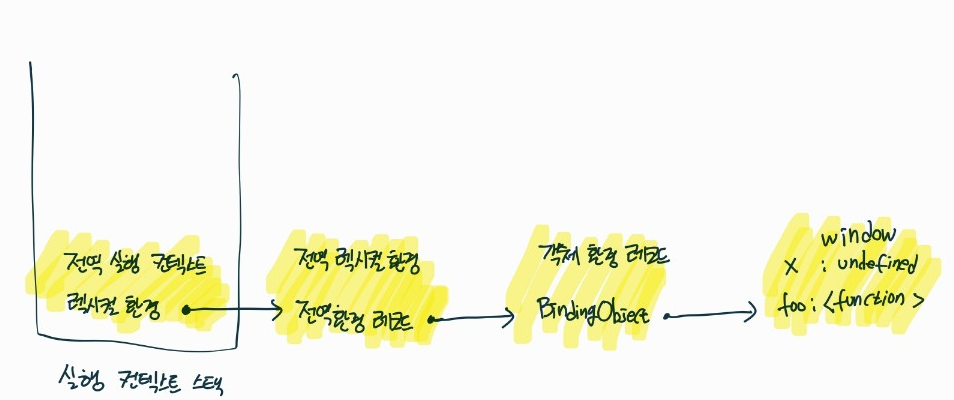 전역 실행 컨텍스트
렉시컬 환경
실행 컨텍스트 스택
전역 렉시컬 환경
전역환경 레코드
객체 환경 레코드
BindingObject
window
x : undefined
foo : <function>